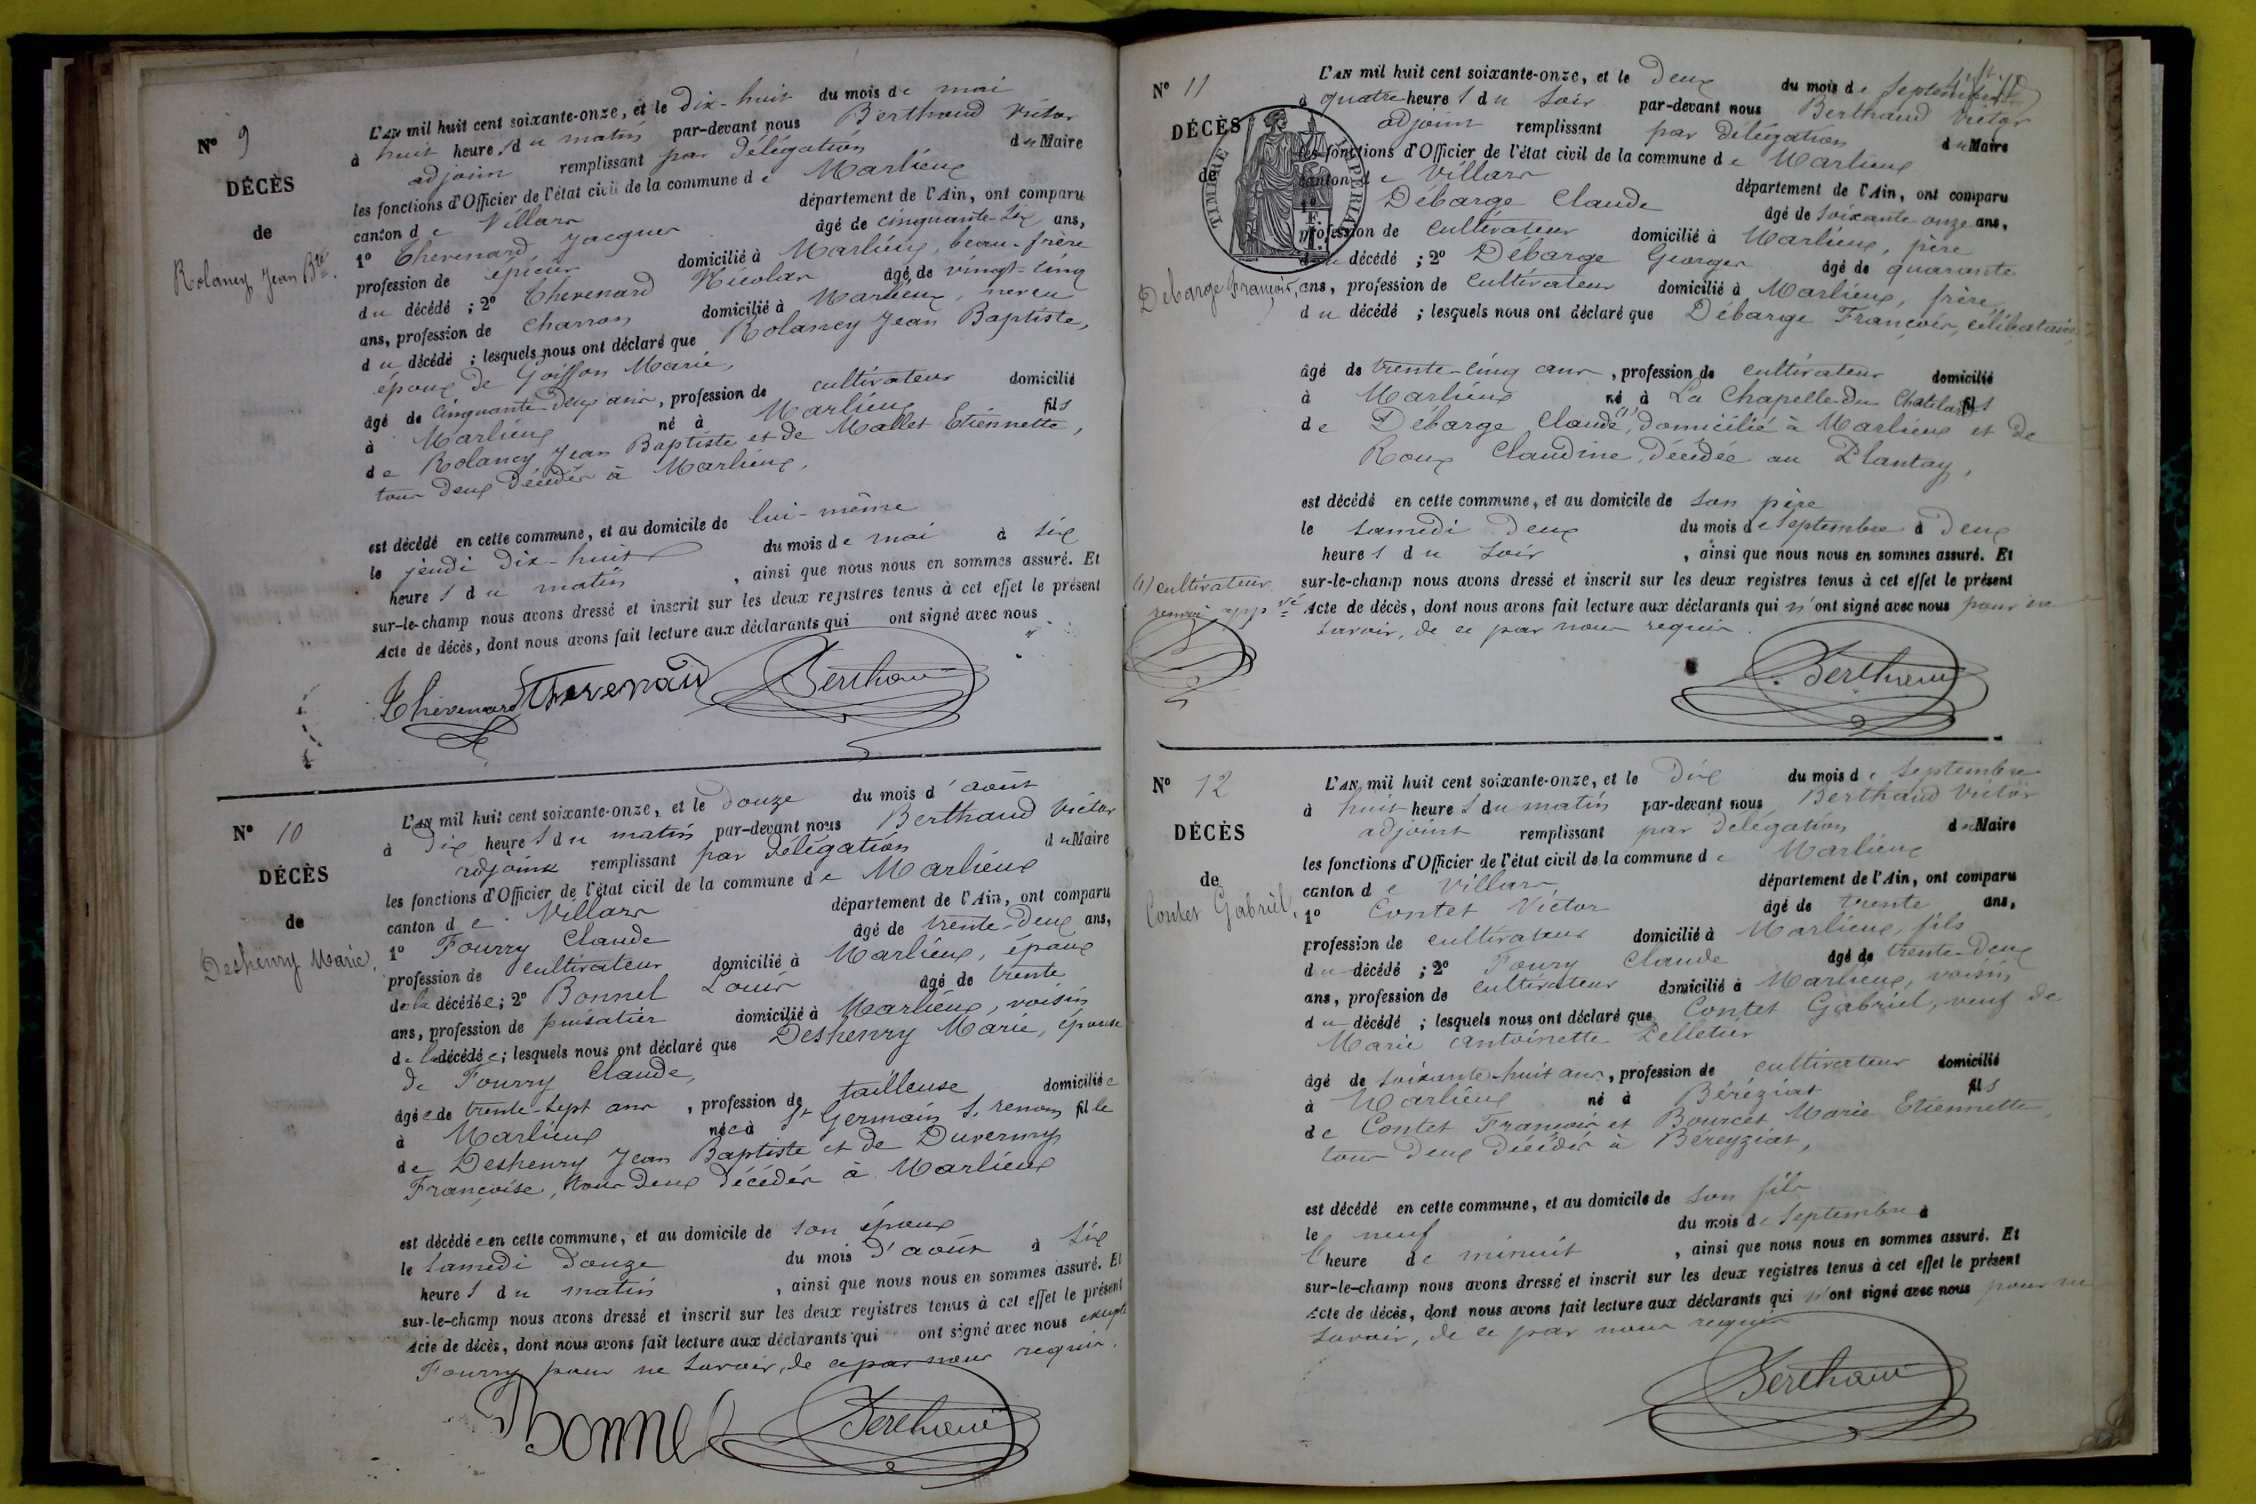 Nº 9
DÉCÈS
de
Rolancy Jean Bte.
L'AN mil huit cent soixante-onze, et le dix-huit du mois de mai
à huit heures du matin par-devant nous Berthaud Victor
adjoint remplissant par délégation du Maire
les fonctions d'Officier de l'état civil de la commune de Marlieux
canton de Villars département de l'Ain, ont comparu
1º Chevenard Jacques âgé de cinquante-six ans,
profession de épicier domicilié à Marlieux, beau-frère
du décédé ; 2º Chevenard Nicolas âgé de vingt-cinq
ans, profession de charron domicilié à Marlieux, neveu
du décédé ; lesquels nous ont déclaré que Rolancy Jean Baptiste,
époux de Goiffon Marie,
âgé de cinquante-deux ans, profession de cultivateur domicilié
à Marlieux né à Marlieux fils
de Rolancy Jean Baptiste et de Mallet Etiennette,
tous deux décédés à Marlieux,
est décédé en cette commune, et au domicile de lui-même
le jeudi dix-huit du mois de mai à six
heures du matin, ainsi que nous nous en sommes assuré. Et
sur-le-champ nous avons dressé et inscrit sur les deux registres tenus à cet effet le présent
Acte de décès, dont nous avons fait lecture aux déclarants qui ont signé avec nous
Chevenard Thevenard Berthaud
Nº 10
DÉCÈS
de
Deshenry Marie,
L'AN mil huit cent soixante-onze, et le douze du mois d'août
à dix heures du matin par-devant nous Berthaud Victor
adjoint remplissant par délégation du Maire
les fonctions d'Officier de l'état civil de la commune de Marlieux
canton de Villars département de l'Ain, ont comparu
1º Fourry Claude âgé de trente-deux ans,
profession de cultivateur domicilié à Marlieux, époux
de la décédée ; 2º Bonnel Louis âgé de trente
ans, profession de puisatier domicilié à Marlieux, voisin
de la décédée ; lesquels nous ont déclaré que Deshenry Marie, épouse
de Fourry Claude,
âgée de trente-sept ans, profession de tailleuse domiciliée
à Marlieux née à St Germain s. renom fille
de Deshenry Jean Baptiste et de Duvernay
Françoise, tous deux décédés à Marlieux
est décédée en cette commune, et au domicile de son époux
le samedi douze du mois d'août à six
heures du matin, ainsi que nous nous en sommes assuré. Et
sur-le-champ nous avons dressé et inscrit sur les deux registres tenus à cet effet le présent
Acte de décès, dont nous avons fait lecture aux déclarants qui ont signé avec nous excepté
Fourry pour ne savoir, de ce par nous requis.
Bonnel Berthaud
Nº 11
DÉCÈS
de
Débarge François,
TIMBRE IMPERIAL
L'AN mil huit cent soixante-onze, et le deux du mois de Septembre
à quatre heures du soir par-devant nous Berthaud Victor
adjoint remplissant par délégation du Maire
les fonctions d'Officier de l'état civil de la commune de Marlieux
canton de Villars département de l'Ain, ont comparu
1º Débarge Claude âgé de soixante onze ans,
profession de cultivateur domicilié à Marlieux, père
du décédé ; 2º Débarge Georges âgé de quarante
ans, profession de cultivateur domicilié à Marlieux, frère
du décédé ; lesquels nous ont déclaré que Débarge François, célibataire,
âgé de trente-cinq ans, profession de cultivateur domicilié
à Marlieux né à La Chapelle du Chatelard fils
de Débarge Claude (1), domicilié à Marlieux et de
Roux Claudine, décédée au Plantay,
est décédé en cette commune, et au domicile de son père
le samedi deux du mois de Septembre à deux
heures du soir, ainsi que nous nous en sommes assuré. Et
(1) cultivateur
renvoi appvé
sur-le-champ nous avons dressé et inscrit sur les deux registres tenus à cet effet le présent
Acte de décès, dont nous avons fait lecture aux déclarants qui n'ont signé avec nous pour ne
savoir, de ce par nous requis.
Berthaud
Nº 12
DÉCÈS
de
Contet Gabriel,
L'AN mil huit cent soixante-onze, et le dix du mois de Septembre
à huit heures du matin par-devant nous Berthaud Victor
adjoint remplissant par délégation du Maire
les fonctions d'Officier de l'état civil de la commune de Marlieux
canton de Villars département de l'Ain, ont comparu
1º Contet Victor âgé de trente ans,
profession de cultivateur domicilié à Marlieux, fils
du décédé ; 2º Foury Claude âgé de trente-deux
ans, profession de cultivateur domicilié à Marlieux, voisin
du décédé ; lesquels nous ont déclaré que Contet Gabriel, veuf de
Marie Antoinette Pelletier
âgé de soixante-huit ans, profession de cultivateur domicilié
à Marlieux né à Béréziat fils
de Contet François et Bourcet Marie Etiennette,
tous deux décédés à Béreyziat,
est décédé en cette commune, et au domicile de son fils
le neuf du mois de Septembre à
l'heure de minuit, ainsi que nous nous en sommes assuré. Et
sur-le-champ nous avons dressé et inscrit sur les deux registres tenus à cet effet le présent
Acte de décès, dont nous avons fait lecture aux déclarants qui n'ont signé avec nous pour ne
savoir, de ce par nous requis
Berthaud